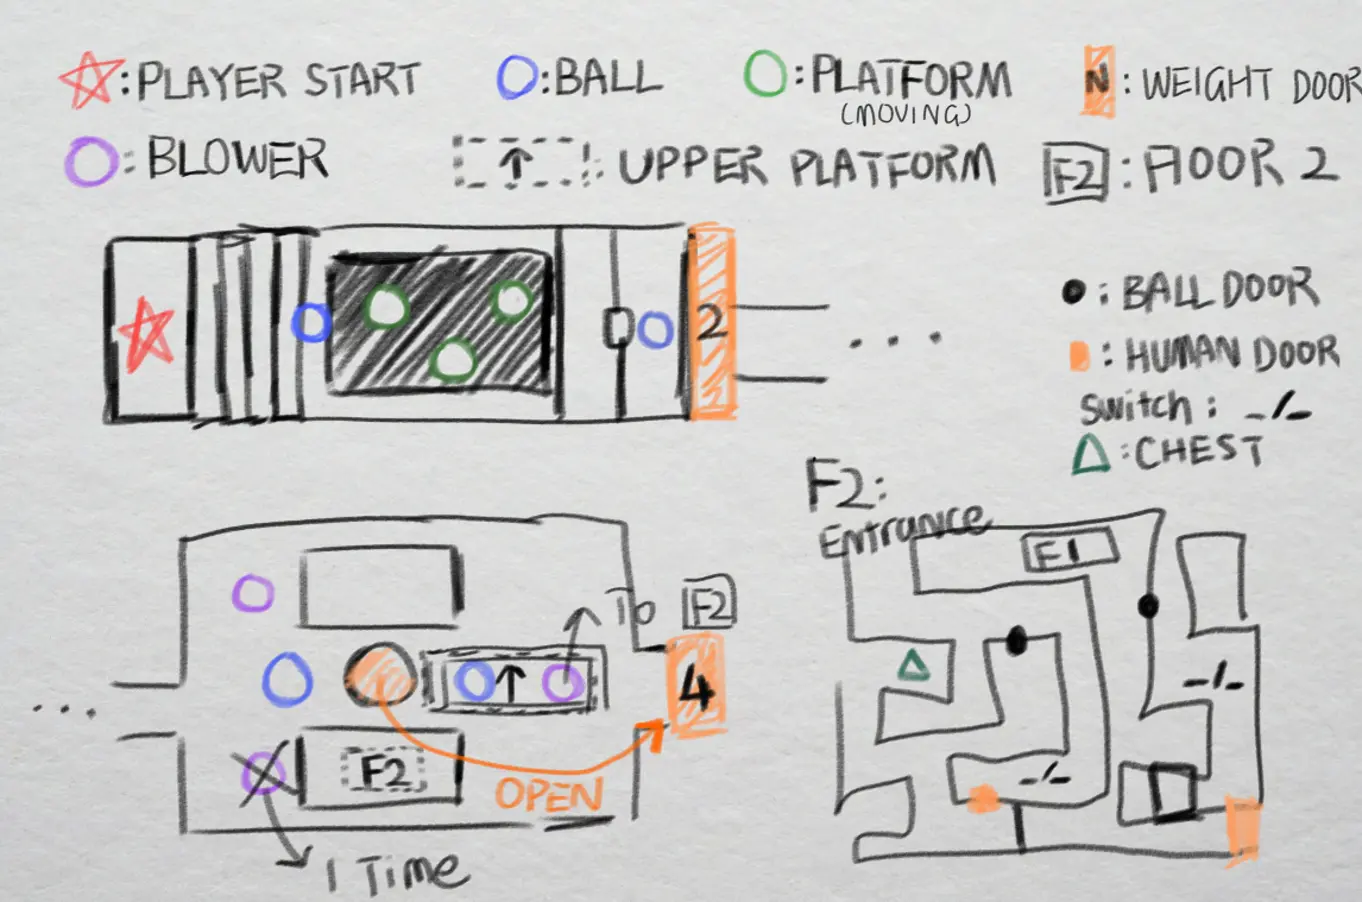 : PLAYER START
: BALL
: PLATFORM
(MOVING)
N : WEIGHT DOOR
: BLOWER
↑ : UPPER PLATFORM
F2 : FLOOR 2
2
...
: BALL DOOR
: HUMAN DOOR
Switch : -/-
: CHEST
F2:
Entrance
F1
-/-
-/-
To F2
↑
4
...
F2
OPEN
1 Time